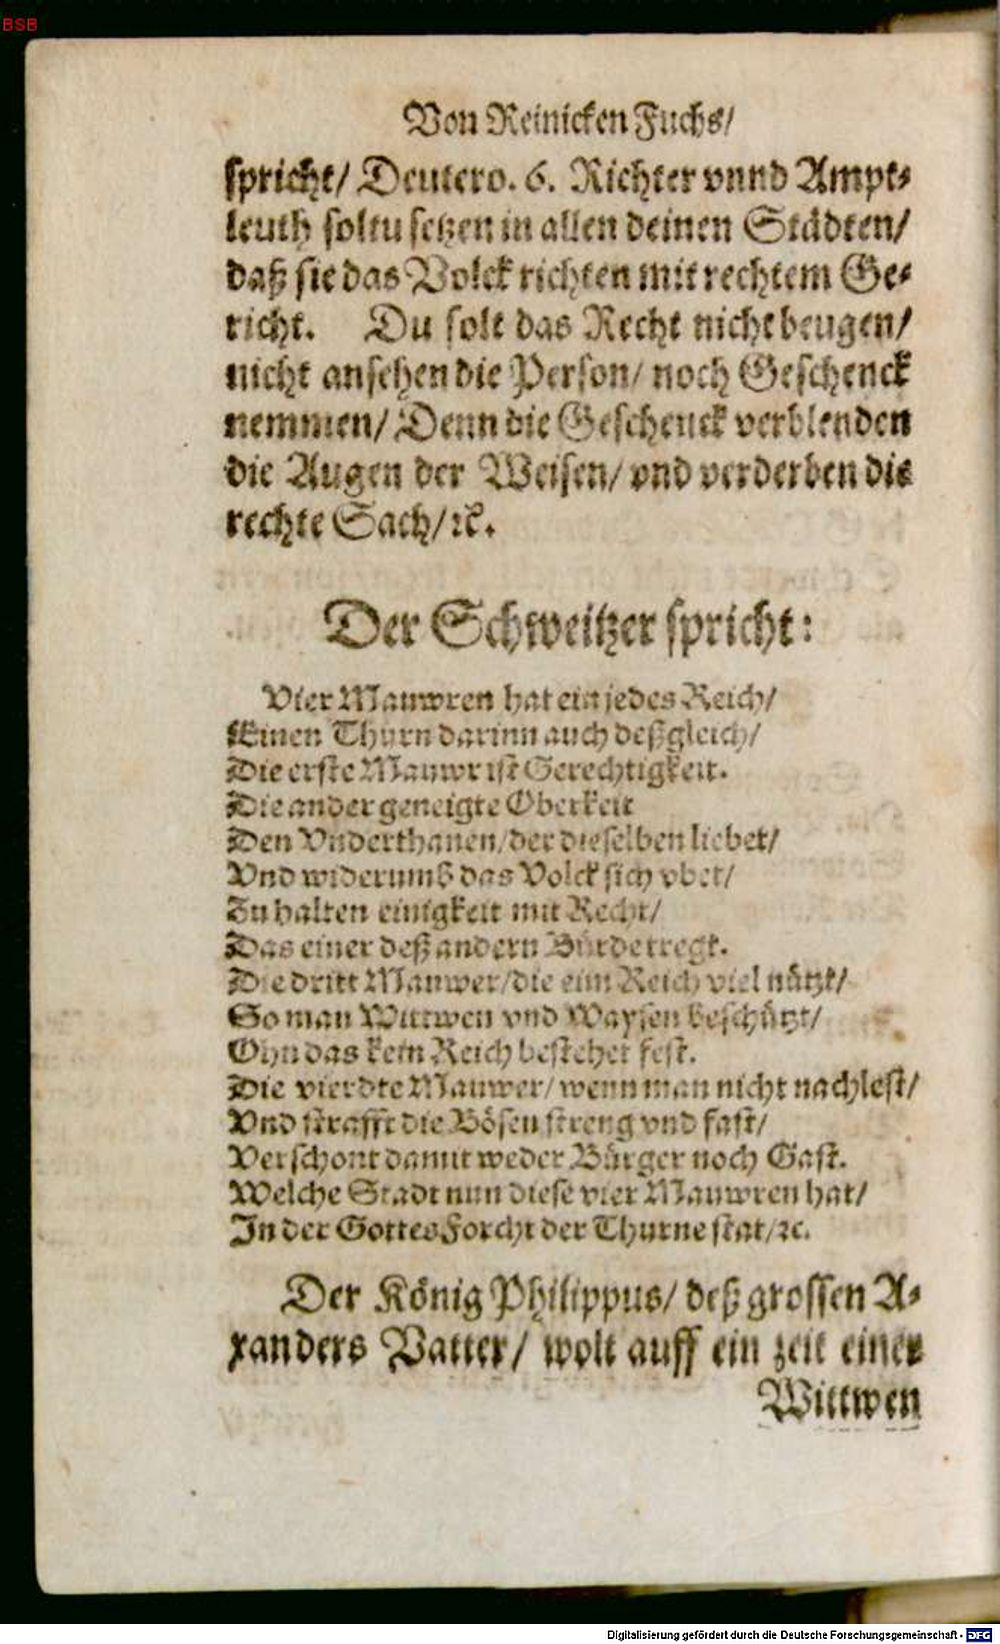 BSB
Von Reinicken Fuchs/
spricht/ Deutero. 6. Richter vnnd Ampt-
leuth soltu setzen in allen deinen Städten/
daß sie das Volck richten mit rechtem Ge-
richt. Du solt das Recht nicht beugen/
nicht ansehen die Person/ noch Geschenck
nemmen/ Denn die Geschenck verblenden
die Augen der Weisen/ vnd verderben die
rechte Sach/ ꝛc.
Der Schweitzer spricht:
Vier Mauwren hat ein jedes Reich/
Einen Thurn darinn auch deßgleich/
Die erste Mauwr ist Gerechtigkeit.
Die ander geneigte Oberkeit
Den Vnderthanen/ der dieselben liebet/
Vnd widerumb das Volck sich vbet/
Zu halten einigkeit mit Recht/
Das einer deß andern Bürde tregt.
Die dritt Mauwer/ die eim Reich viel nützt/
So man Wittwen vnd Waysen beschützt/
Ohn das kein Reich bestehet fest.
Die vierdte Mauwer/ wenn man nicht nachlest/
Vnd strafft die Bösen streng vnd fast/
Verschont damit weder Bürger noch Gast.
Welche Stadt nun diese vier Mauwren hat/
In der Gottes Forcht der Thurne stat/ ꝛc.
Der König Philippus/ deß grossen A-
xanders Vatter/ wolt auff ein zeit einer
Wittwen
Digitalisierung gefördert durch die Deutsche Forschungsgemeinschaft - DFG